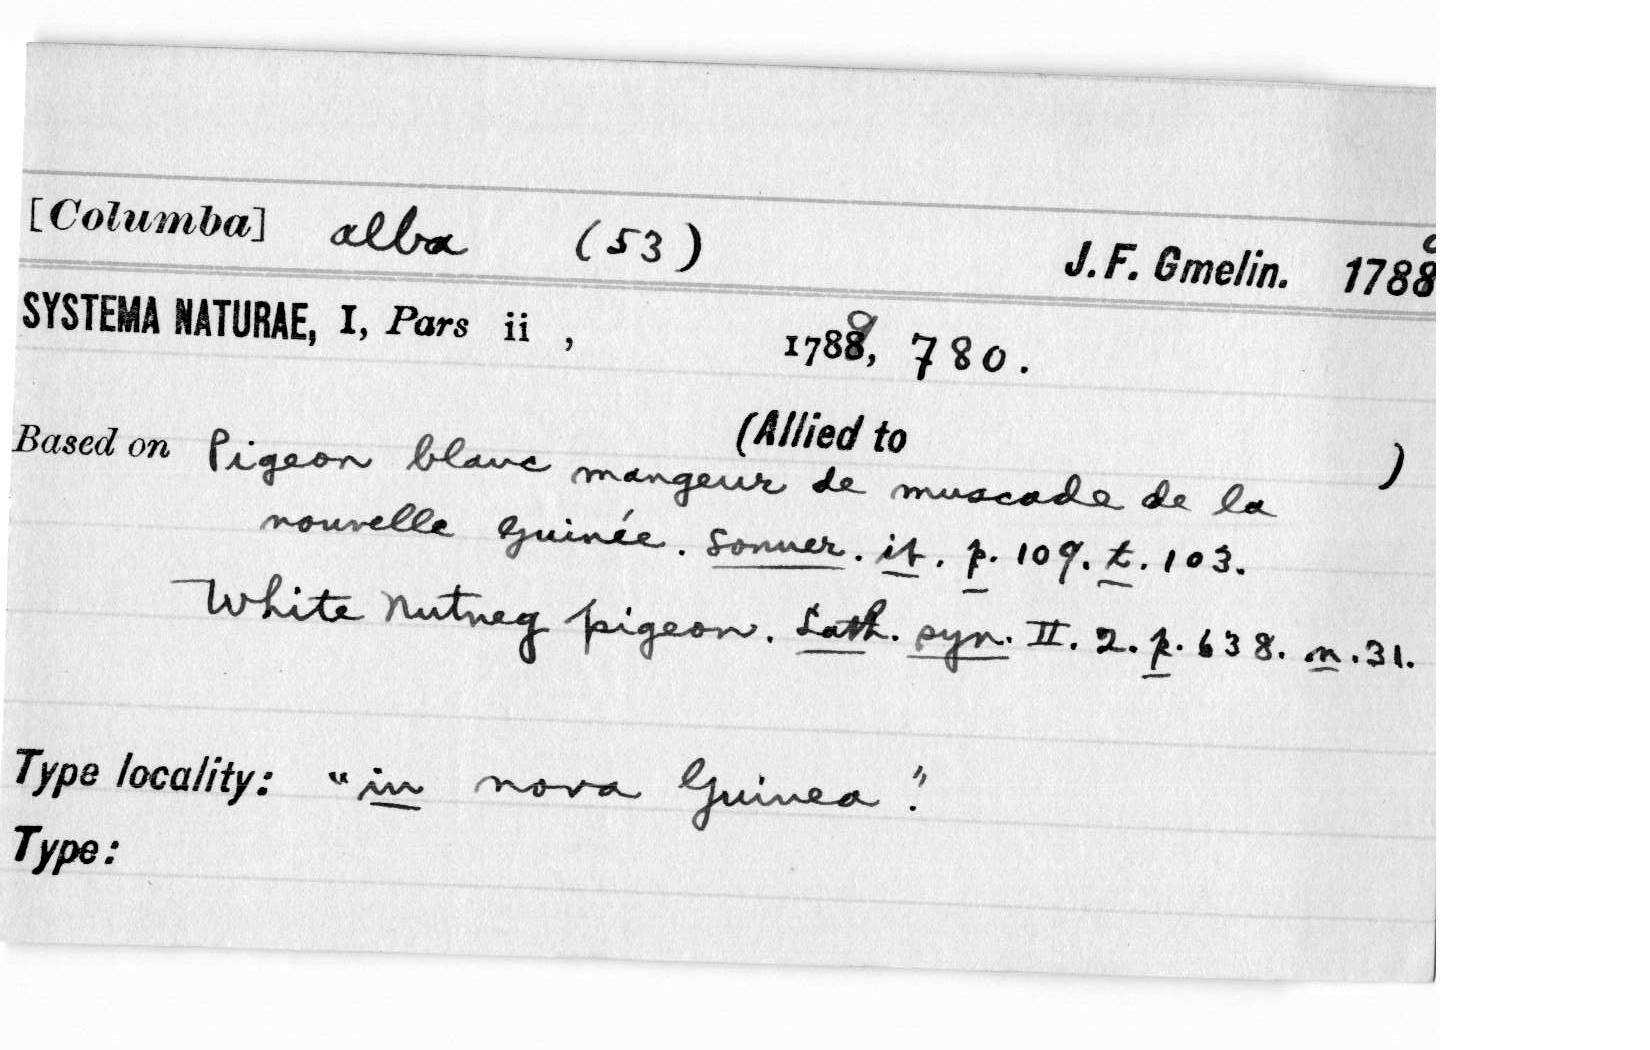 [Columba] alba (53) J. F. Gmelin. 1788
SYSTEMA NATURAE, I, Pars ii , 1789, 780.
(Allied to )
Based on Pigeon blanc mangeur de muscade de la
nouvelle Guinée. Sonner. it. p. 109. t. 103.
White Nutmeg pigeon. Lath. syn. II. 2. p. 638. n. 31.
Type locality: "in nova Guinea".
Type: